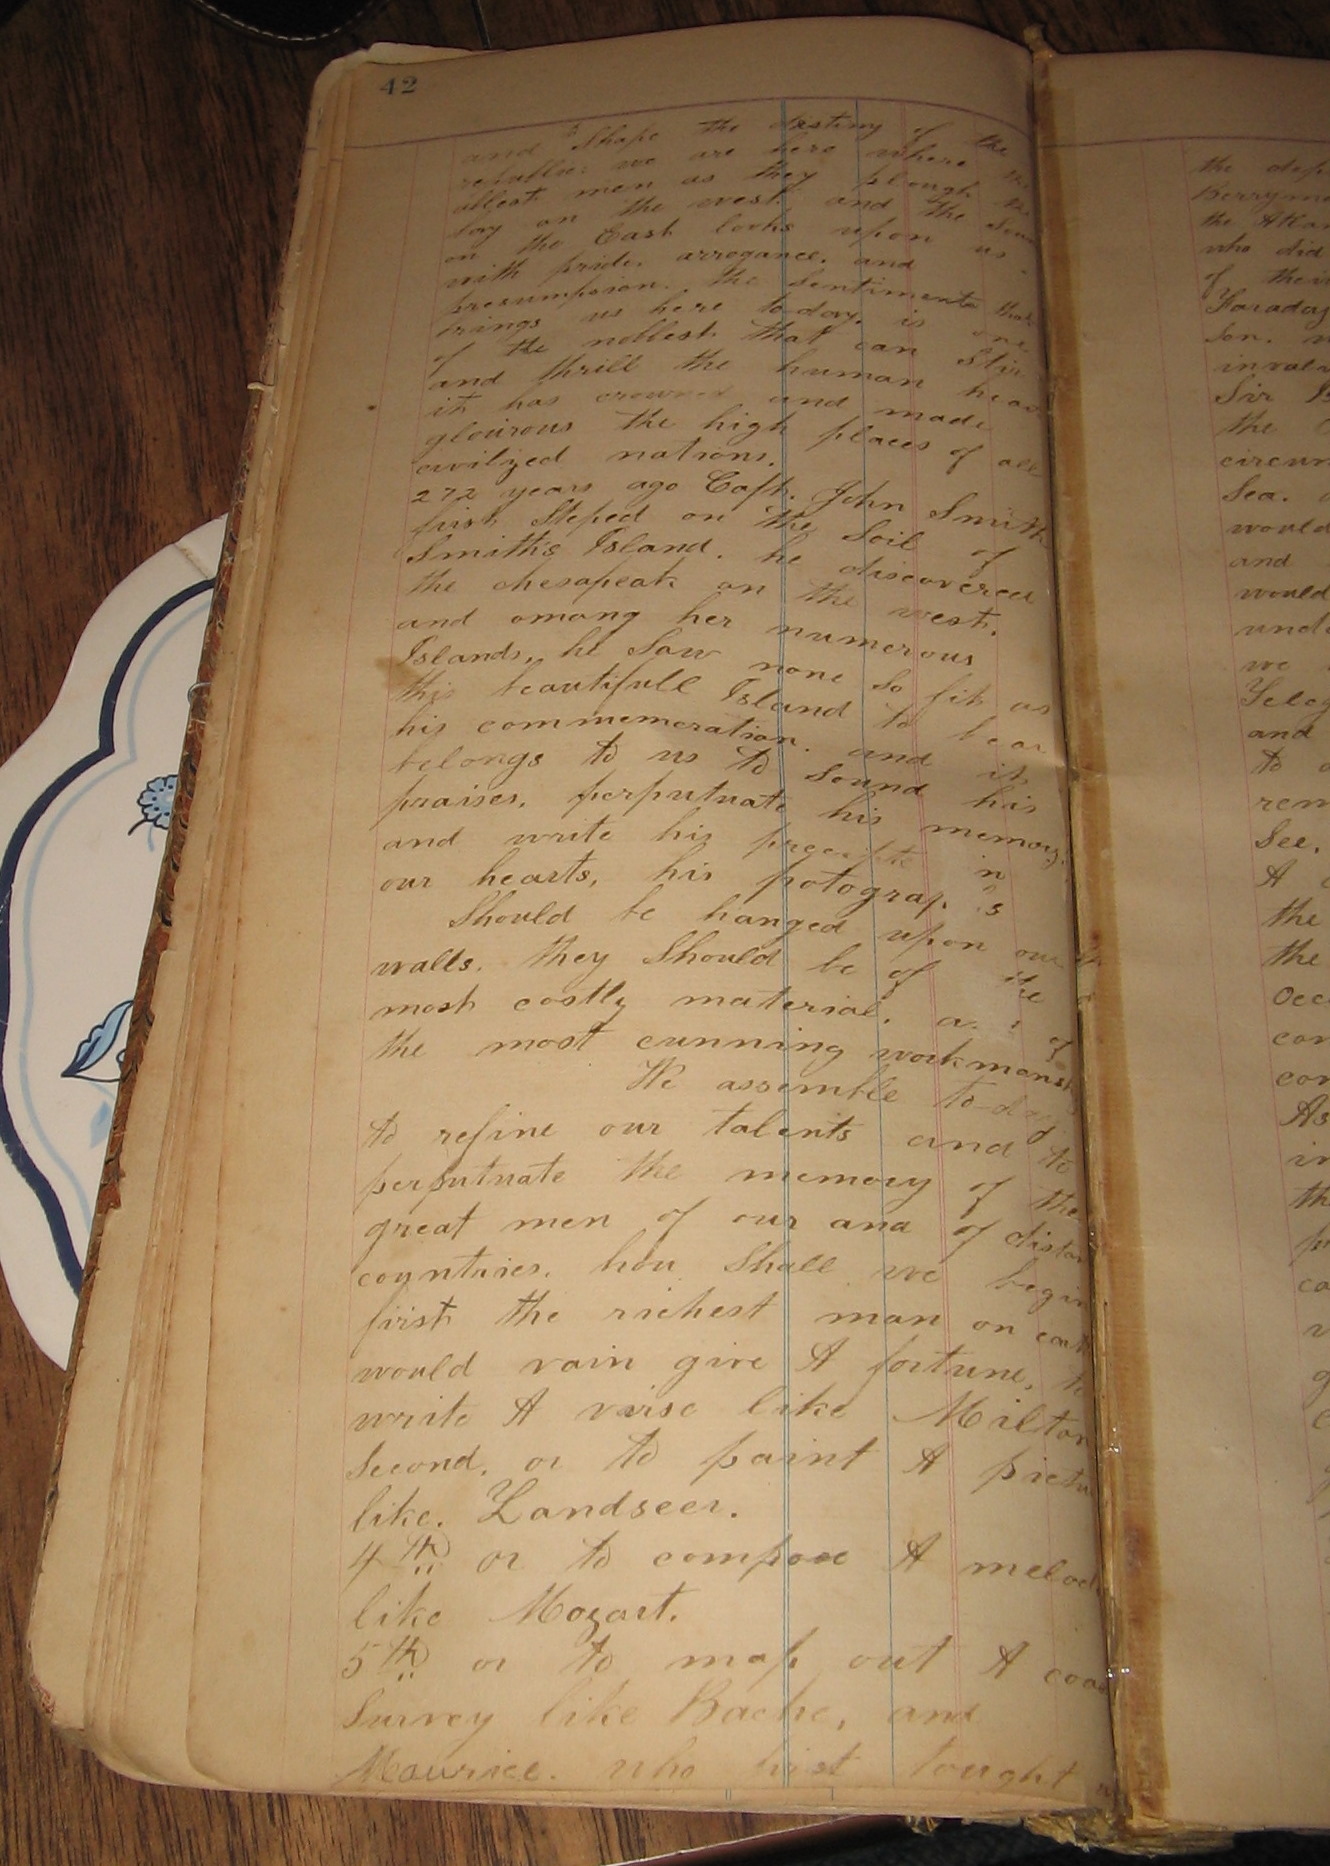 42
and Shape the destiny of the
republic. we are here where the
ablest men as they plough the
bay on the west and the Soun
on the East looks upon us.
with pride. arrogance. and
presumpsion. the Sentiments that
brings us here today. is one
of the noblest that can Stir
and thrill the human hear
it has crowned and made
glourous the high places of all
civilized nations.
272 years ago Capt. John Smith
first Steped on the Soil of
Smith's Island. he discovered
the chesapeak on the west.
and among her numerous
Islands, he Saw none So fit as
this beautifull Island to bear
his commemoration. and it
belongs to us to Sound his
praises, perputuate his memory.
and write his in
our hearts, his potograp s
Should be hanged upon our
walls. they Should be of the
most costly material. a of
the most cunning workmansh
We assemble to-day
to refine our talents and to
perputuate the memory of the
great men of our and of distan
countries. how Shall we begin
first the richest man on earth
would vain give A fortune, to
write A verse like Milton
Second. or to paint A pictu
like. Landseer.
4th or to compose A melod
like Mozart.
5th or to map out A coa
Survey like Bache, and
Maurice. who first tought
the dep
Berryma
the Atlan
who did
of their
Faraday
Son.
invalu
Sir
the
circum
Sea.
would
and
would
unde
we
Teleg
and
to
rem
See.
A
the
the
occ
con
con
As
in
the